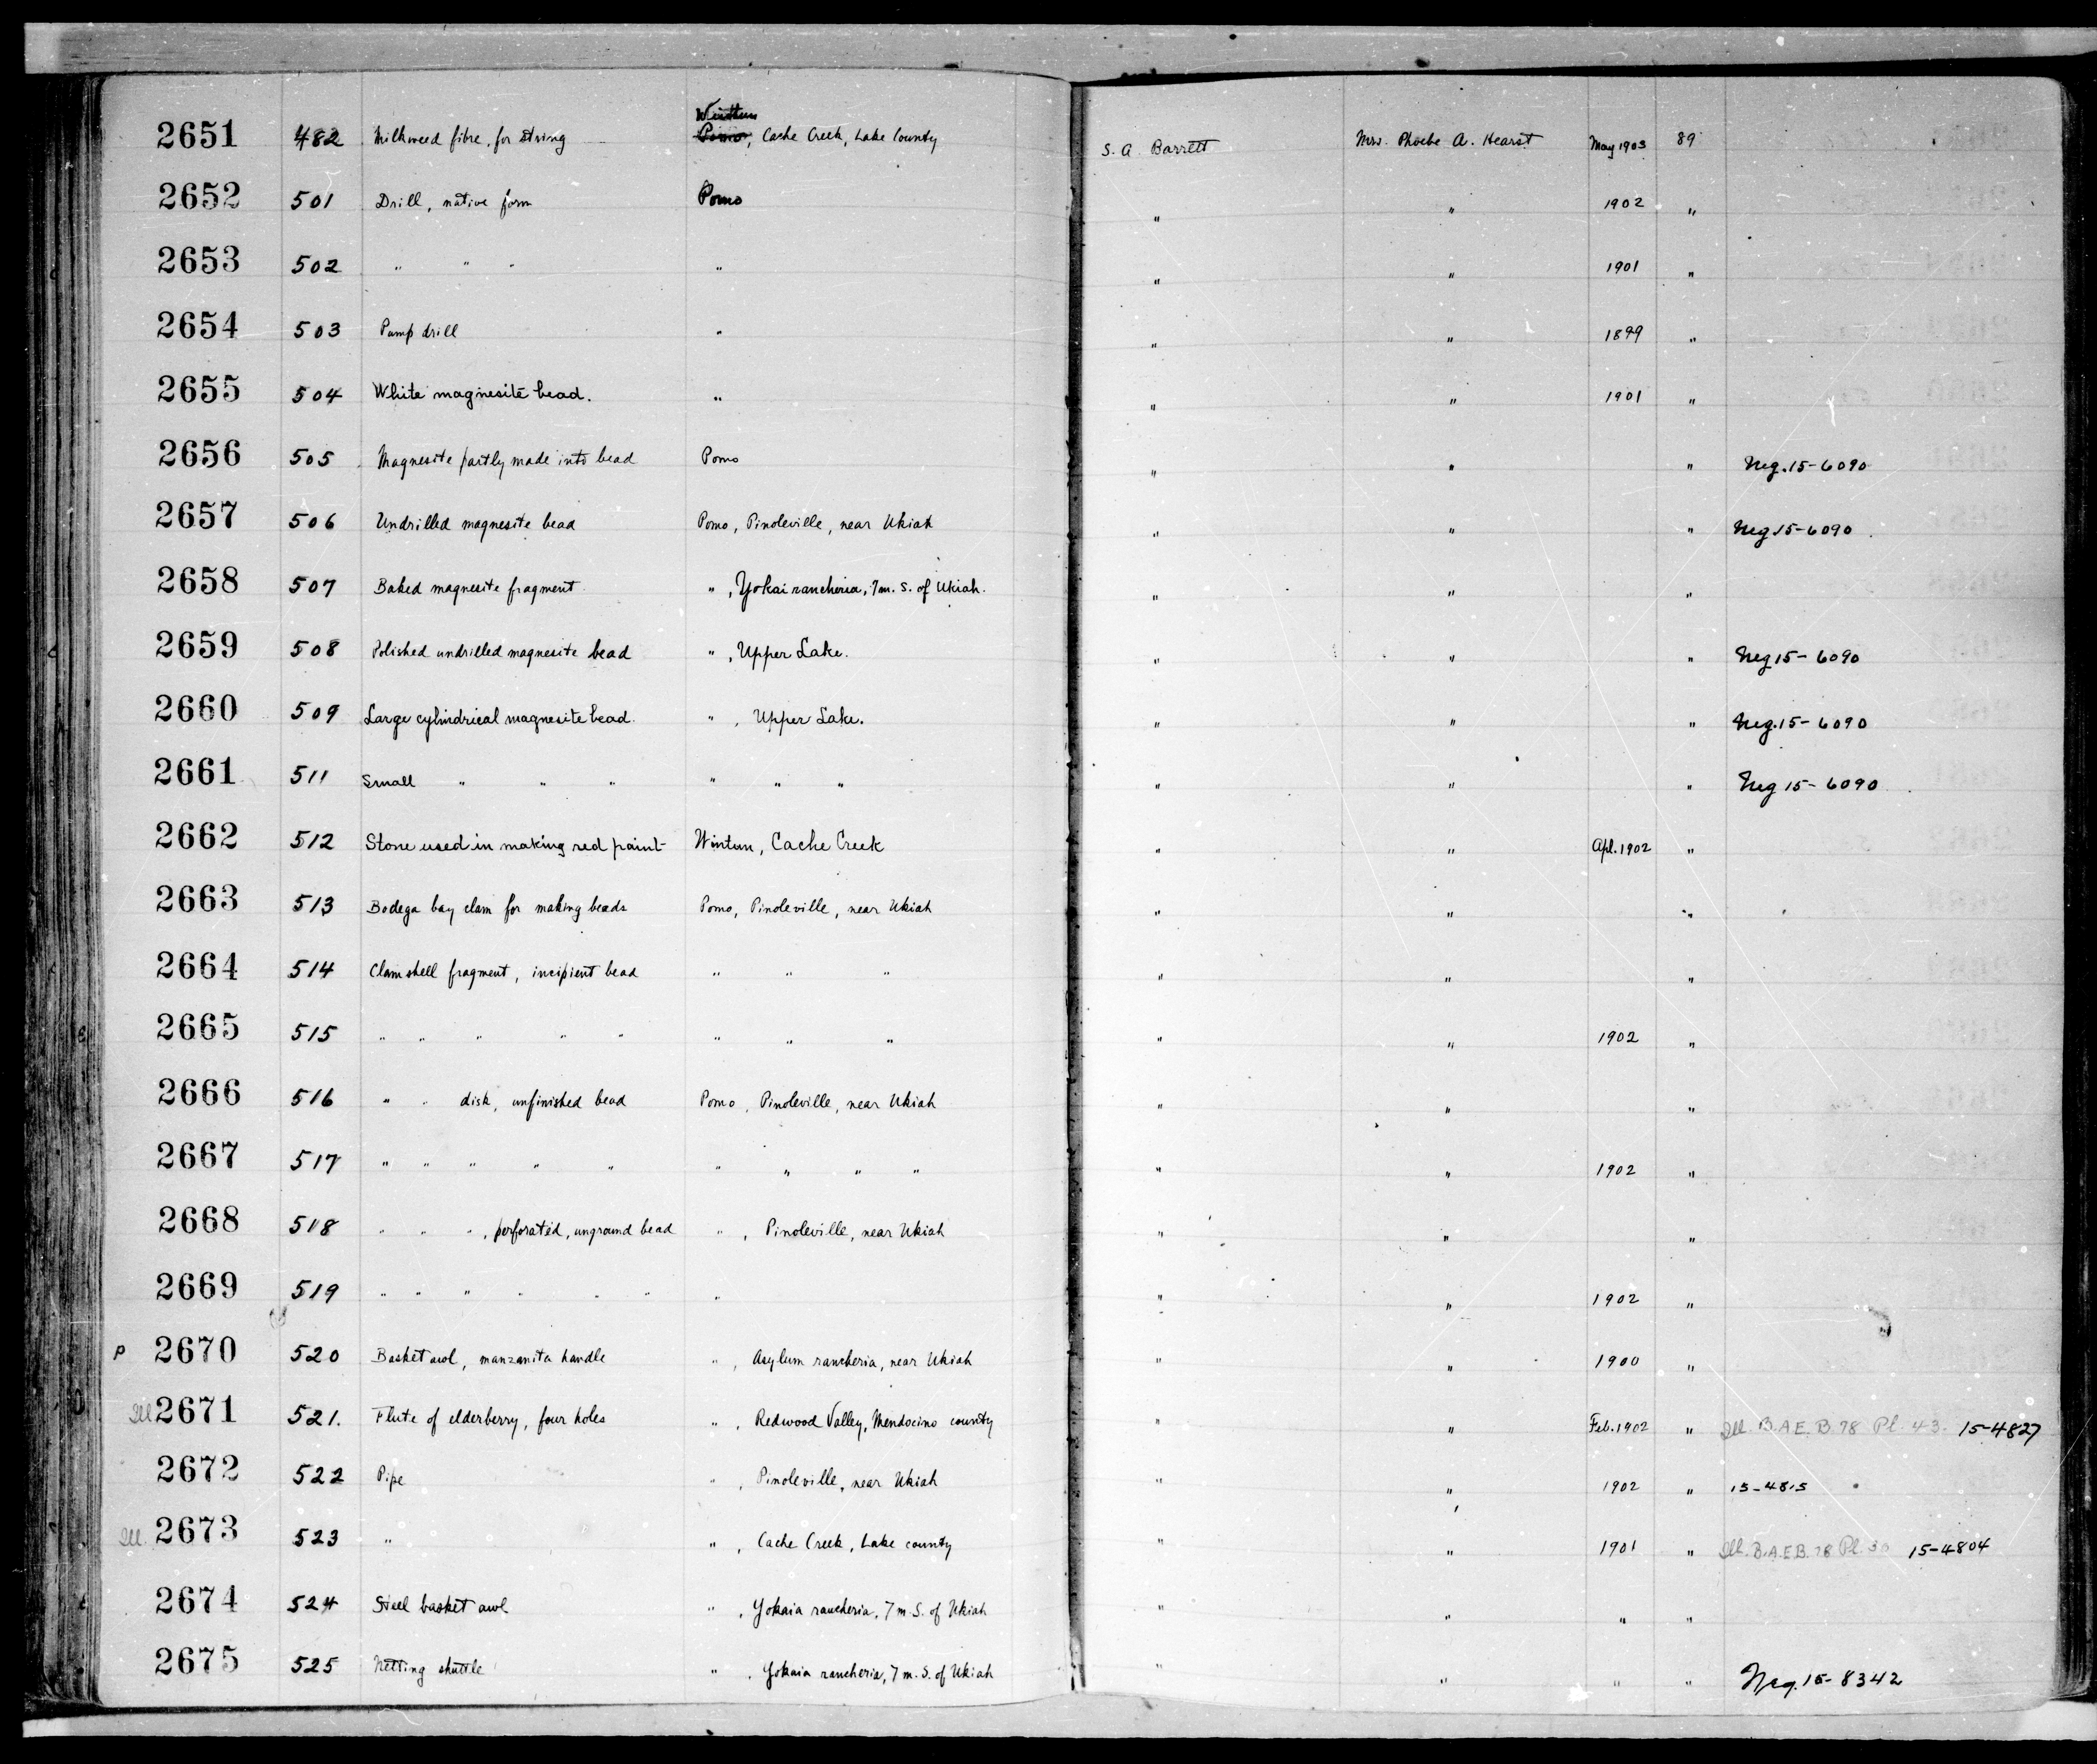 2651 482 Milkweed fibre, for string Wintun Pomo, Cache Creek, Lake County S. A. Barrett Mrs. Phoebe A. Hearst May 1903 89
2652 501 Drill, native form Pomo " " 1902 "
2653 502 " " " " " " 1901 "
2654 503 Pump drill " " " 1899 "
2655 504 White magnesite bead. " " " 1901 "
2656 505 Magnesite partly made into bead Pomo " " " Neg. 15-6090
2657 506 Undrilled magnesite bead Pomo, Pinoleville, near Ukiah " " " Neg 15-6090
2658 507 Baked magnesite fragment " , Yokai rancheria, 7 m. S. of Ukiah. " " "
2659 508 Polished undrilled magnesite bead " , Upper Lake. " " " Neg 15-6090
2660 509 Large cylindrical magnesite bead. " , Upper Lake. " " " Neg. 15-6090
2661 511 Small " " " " " " " " " Neg 15-6090
2662 512 Stone used in making red paint Wintun, Cache Creek " " Apl. 1902 "
2663 513 Bodega bay clam for making beads Pomo, Pinoleville, near Ukiah " " "
2664 514 Clam shell fragment, incipient bead " " " " " "
2665 515 " " " " " " " " " " 1902 "
2666 516 " " disk, unfinished bead Pomo, Pinoleville, near Ukiah " " "
2667 517 " " " " " " " " " " " 1902 "
2668 518 " " " , perforated, unground bead " , Pinoleville, near Ukiah " " "
2669 519 " " " " " " " " " 1902 "
P 2670 520 Basket awl, manzanita handle " , Asylum rancheria, near Ukiah " " 1900 "
Ill 2671 521. Flute of elderberry, four holes " , Redwood Valley, Mendocino county " " Feb. 1902 " Ill. B.A.E. B. 78 Pl. 43. 15-4827
2672 522 Pipe " , Pinoleville, near Ukiah " " 1902 " 15-4815
Ill. 2673 523 " " , Cache Creek, Lake county " " 1901 " Ill. B.A.E.B. 78 Pl. 30 15-4804
2674 524 Steel basket awl " , Yokaia rancheria, 7 m S. of Ukiah " " " "
2675 525 Netting shuttle " , Yokaia rancheria, 7 m. S. of Ukiah " " " " Neg. 15-8342